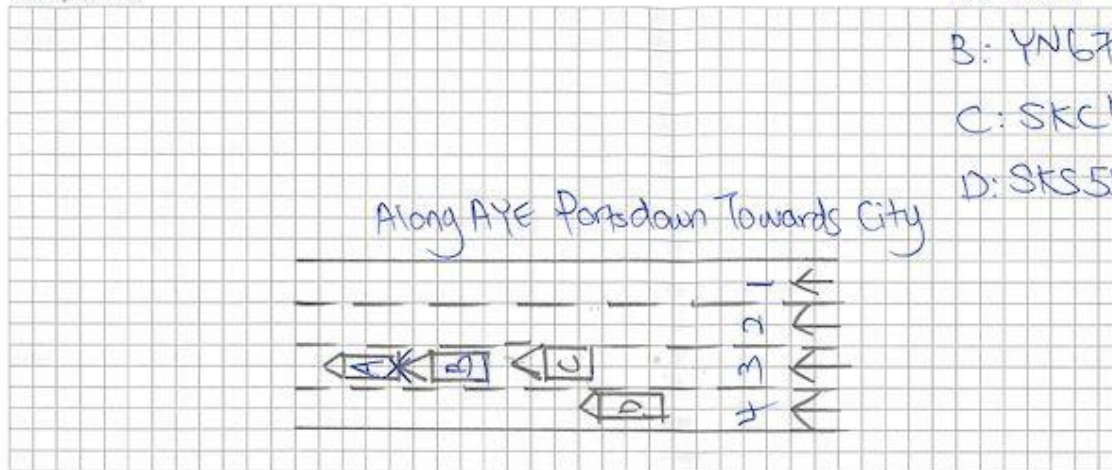 B: YN67
C: SKC
D: SKS5
Along AYE Portsdown Towards City
1
2
A B C 3
D 4